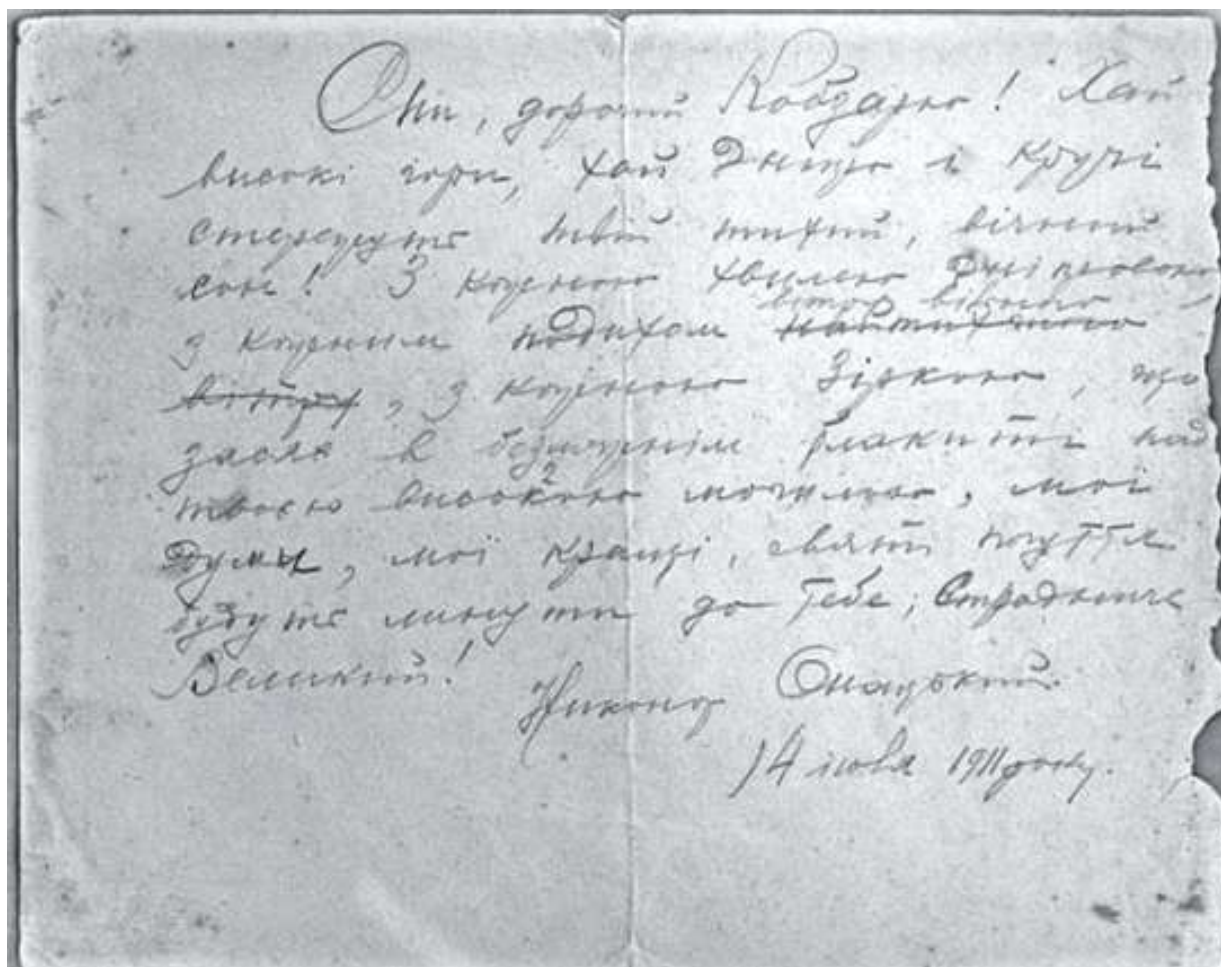 Спи, дорогий Кобзарю! Хай
високі гори, хай Дніпро і кручі
стережуть твій тихий, вічний
сон! З кожною хвилею Дніпровою
з кожним подихом найтихчого
вітру, з кожною Зіркою, що
засяє в безмежнім блакиті над
твоєю високою могилою, мої
думи, мої кращі, святі почуття
будуть линути до Тебе, Страдниче
Великий!
Никона Онацький.
14 июля 1911 року.